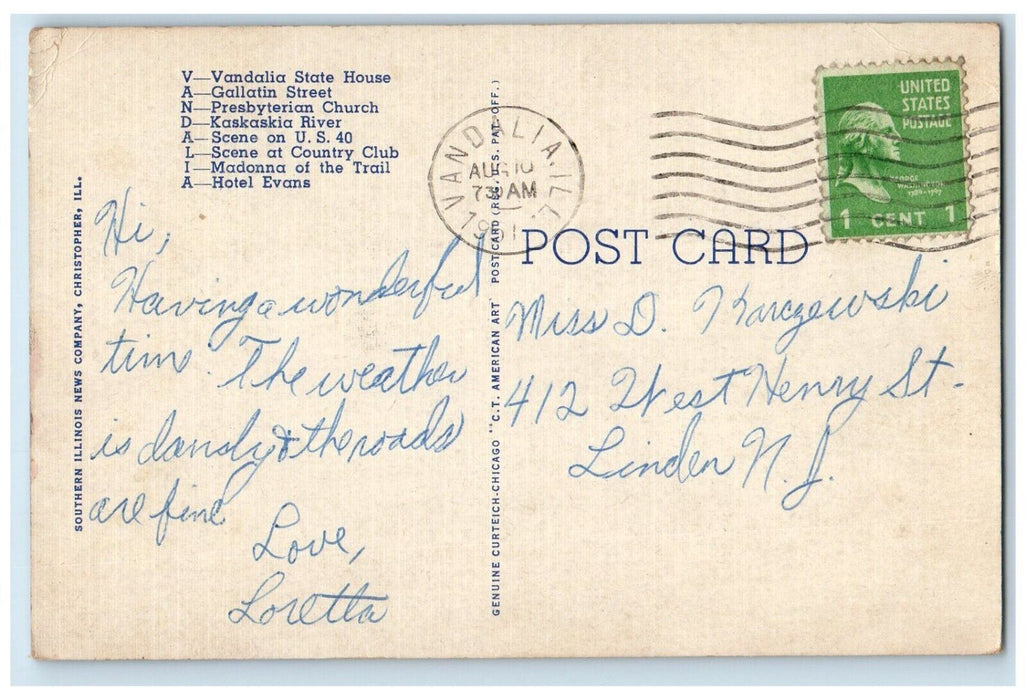 V—Vandalia State House
A—Gallatin Street
N—Presbyterian Church
D—Kaskaskia River
A—Scene on U.S. 40
L—Scene at Country Club
I—Madonna of the Trail
A—Hotel Evans
SOUTHERN ILLINOIS NEWS COMPANY, CHRISTOPHER, ILL.
Hi,
Having a wonderful
time. The weather
is dandy & the roads
are fine.
Love,
Loretta
GENUINE CURTEICH-CHICAGO "C.T. AMERICAN ART" POST CARD (REG. U.S. PAT. OFF.)
VANDALIA, ILL.
AUG 10
730 AM
UNITED
STATES
POSTAGE
GEORGE
WASHINGTON
1 CENT 1
POST CARD
Miss D. Karczewski
412 West Henry St.
Linden N.J.